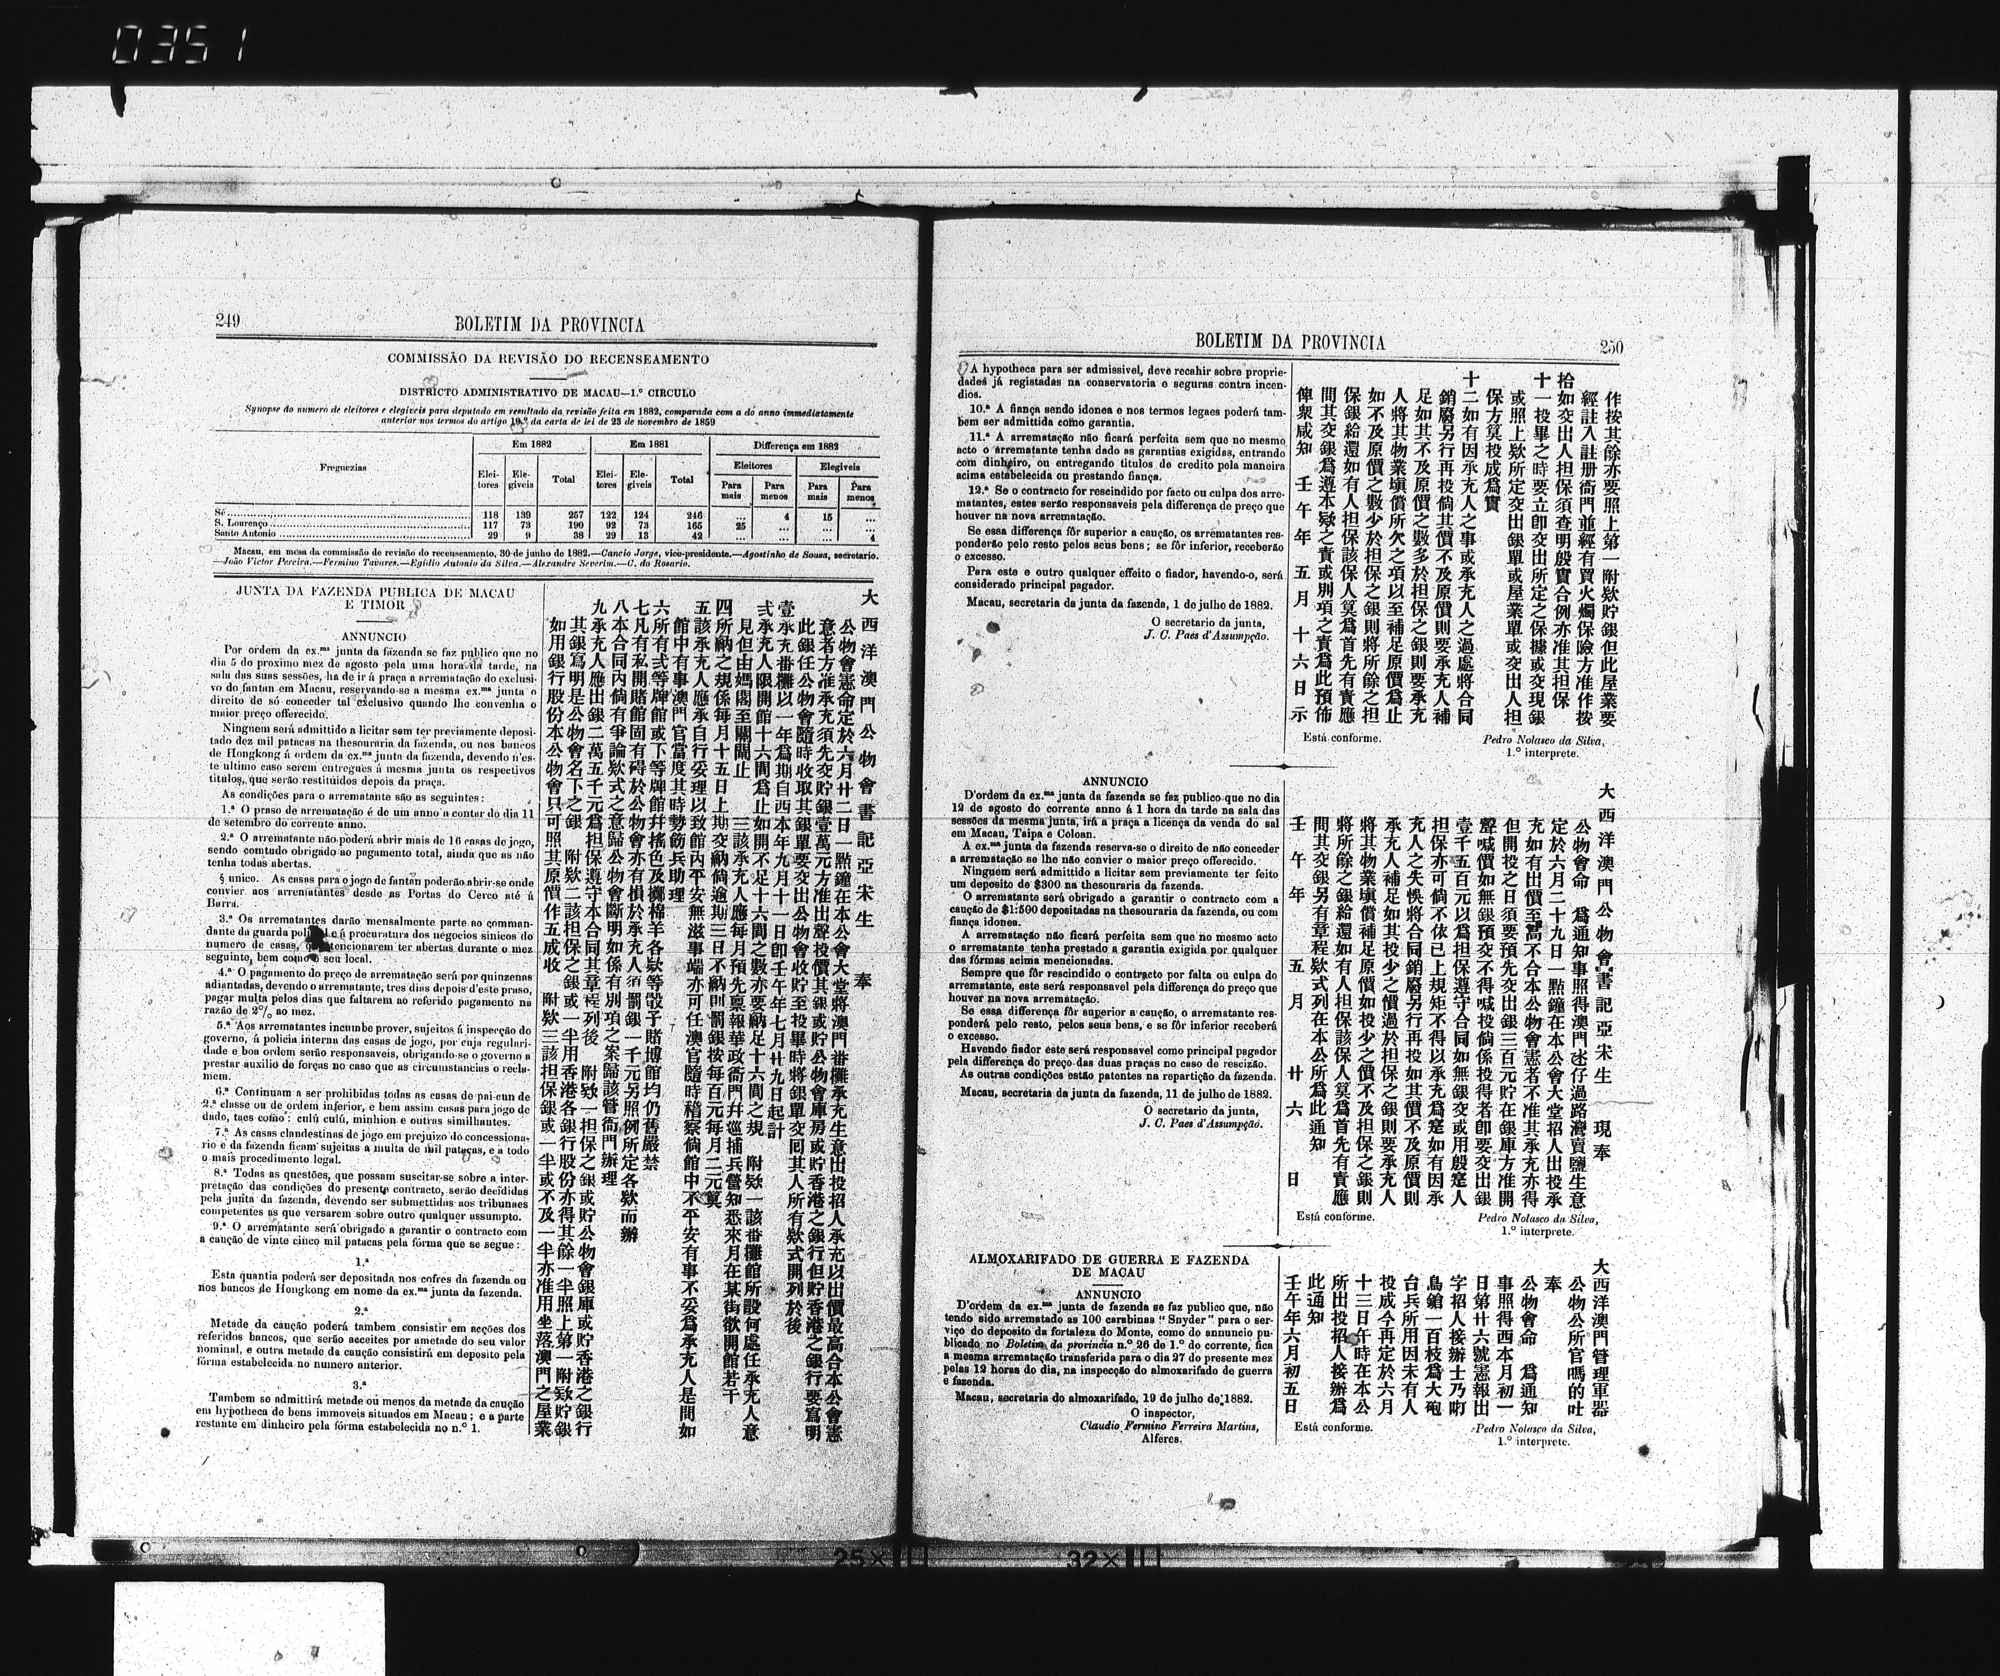 0351
249
BOLETIM DA PROVINCIA
COMMISSÃO DA REVISÃO DO RECENSEAMENTO
DISTRICTO ADMINISTRATIVO DE MACAU—1.º CIRCULO
Synopse do numero de eleitores e elegiveis para deputado em resultado da revisão feita em 1882, comparada com a do anno immediatamente
anterior nos termos do artigo 19.º da carta de lei de 23 de novembro de 1859
Freguezias Em 1882 Em 1881 Differença em 1882
Eleitores Elegiveis Total Eleitores Elegiveis Total Eleitores Elegiveis
Para mais Para menos Para mais Para menos
Sé 118 139 257 122 124 246 ... 4 15 ...
S. Lourenço 117 73 190 92 73 165 25 ... ... ...
Santo Antonio 29 9 38 29 13 42 ... ... ... 4
Macau, em mesa da commissão de revisão do recenseamento, 30 de junho de 1882.—Cancio Jorge, vice-presidente.—Agostinho de Sousa, secretario.
—João Victor Pereira.—Fermino Tavares.—Egidio Antonio da Silva.—Alexandre Severim.—C. do Rosario.
JUNTA DA FAZENDA PUBLICA DE MACAU
E TIMOR
ANNUNCIO
Por ordem da ex.ma junta da fazenda se faz publico que no
dia 5 do proximo mez de agosto pela uma hora da tarde, na
sala das suas sessões, ha de ir á praça a arrematação do exclusi-
vo do fantan em Macau, reservando-se a mesma ex.ma junta o
direito de só conceder tal exclusivo quando lhe convenha o
maior preço offerecido.
Ninguem será admittido a licitar sem ter previamente deposi-
tado dez mil patacas na thesouraria da fazenda, ou nos bancos
de Hongkong á ordem da ex.ma junta da fazenda, devendo n'es-
te ultimo caso serem entregues á mesma junta os respectivos
titulos, que serão restituidos depois da praça.
As condições para o arrematante são as seguintes:
1.ª O praso de arrematação é de um anno a contar do dia 11
de setembro do corrente anno.
2.ª O arrematante não poderá abrir mais de 16 casas de jogo,
sendo comtudo obrigado ao pagamento total, ainda que as não
tenha todas abertas.
§ unico. As casas para o jogo de fantan poderão abrir-se onde
convier aos arrematantes desde as Portas do Cerco até á
Barra.
3.ª Os arrematantes darão mensalmente parte ao comman-
dante da guarda policial e á procuratura dos negocios sinicos do
numero de casas, que tencionarem ter abertas durante o mez
seguinte, bem como o seu local.
4.ª O pagamento do preço de arrematação será por quinzenas
adiantadas, devendo o arrematante, tres dias depois d'este praso,
pagar multa pelos dias que faltarem ao referido pagamento na
razão de 2% ao mez.
5.ª Aos arrematantes incumbe prover, sujeitos á inspecção do
governo, á policia interna das casas de jogo, por cuja regulari-
dade e boa ordem serão responsaveis, obrigando-se o governo a
prestar auxilio de forças no caso que as circumstancias o recla-
mem.
6.ª Continuam a ser prohibidas todas as casas de pai-cun de
2.ª classe ou de ordem inferior, e bem assim casas para jogo de
dado, taes como: culú culú, minhion e outras similhantes.
7.ª As casas clandestinas de jogo em prejuizo do concessiona-
rio e da fazenda ficam sujeitas a multa de mil patacas, e a todo
o mais procedimento legal.
8.ª Todas as questões, que possam suscitar-se sobre a inter-
pretação das condições do presente contracto, serão decididas
pela junta da fazenda, devendo ser submettidas aos tribunaes
competentes as que versarem sobre outro qualquer assumpto.
9.ª O arrematante será obrigado a garantir o contracto com
a caução de vinte cinco mil patacas pela fórma que se segue:
1.ª
Esta quantia poderá ser depositada nos cofres da fazenda ou
nos bancos de Hongkong em nome da ex.ma junta da fazenda.
2.ª
Metade da caução poderá tambem consistir em acções dos
referidos bancos, que serão acceites por ametade do seu valor
nominal, e outra metade da caução consistirá em deposito pela
fórma estabelecida no numero anterior.
3.ª
Tambem se admittirá metade ou menos da metade da caução
em hypotheca de bens immoveis situados em Macau; e a parte
restante em dinheiro pela fórma estabelecida no n.º 1.
大西洋澳門公物會書記亞宋生 奉
公物會憲命定於六月廿二日一點鐘在本公會大堂將澳門番攤承充生意出投招人承充以出價最高合本公會憲
意者方准承充須先交貯銀壹萬元方准出聲投價其銀或貯公物會庫房或貯香港之銀行但貯香港之銀行要寫明
此銀任公物會隨時收取其銀單要交出公物會收貯至投畢時將銀單交囘其人所有欵式開列於後
壹承充番攤以一年爲期自西本年九月十一日卽壬午年七月廿九日起計
弍承充人限開館十六間爲止如開不足十六間之數亦要納足十六間之規 附欵一該番攤館所設何處任承充人意
見但由媽閣至關閘止 三該承充人應每月預先稟報華政衙門幷巡捕兵營知悉來月在某街欲開館若干
四所納之規係每月十五日上期交納倘逾期三日不納則罰銀按每百元每月二元算
五該承充人應承自行妥理以致館內平安無滋事端亦可任澳官隨時稽察倘館中不平安有事不妥爲承充人是問如
館中有事澳門官當度其時勢飭兵助理
六所有弍等牌館或下等牌館幷搖色及擲棉羊各欵等骰子賭博館均仍舊嚴禁
七凡有私開賭館固有碍於公物會亦有損於承充人須罰銀一千元另照例所定各欵而辦
八本合同內倘有爭論欵式之意歸公物會斷明如係有別項之案歸該管衙門辦理
九承充人應出銀二萬五千元爲担保遵守本合同其章程列後 附欵一担保之銀或貯公物會銀庫或貯香港之銀行
其銀寫明是公物會名下之銀 附欵二該担保之銀或一半用香港各銀行股份亦得其餘一半照上第一附欵貯銀
如用銀行股份本公物會只可照其原價作五成收 附欵三該担保銀或一半或不及一半亦准用坐落澳門之屋業
BOLETIM DA PROVINCIA
250
A hypotheca para ser admissivel, deve recahir sobre proprie-
dades já registadas na conservatoria e seguras contra incen-
dios.
10.ª A fiança sendo idonea e nos termos legaes poderá tam-
bem ser admittida como garantia.
11.ª A arrematação não ficará perfeita sem que no mesmo
acto o arrematante tenha dado as garantias exigidas, entrando
com dinheiro, ou entregando titulos de credito pela maneira
acima estabelecida ou prestando fiança.
12.ª Se o contracto for rescindido por facto ou culpa dos arre-
matantes, estes serão responsaveis pela differença de preço que
houver na nova arrematação.
Se essa differença fôr superior a caução, os arrematantes res-
ponderão pelo resto pelos seus bens; se fôr inferior, receberão
o excesso.
Para este e outro qualquer effeito o fiador, havendo-o, será
considerado principal pagador.
Macau, secretaria da junta da fazenda, 1 de julho de 1882.
O secretario da junta,
J. C. Paes d'Assumpção.
作按其餘亦要照上第一附欵貯銀但此屋業要
經註入註册衙門並經有買火燭保險方准作按
拾如交出人担保須查明殷實合例亦准其担保
十一投畢之時要立卽交出所定之保據或交現銀
或照上欵所定交出銀單或屋業單或交出人担
保方算投成爲實
十二如有因承充人之事或承充人之過處將合同
銷廢另行再投倘其價不及原價則要承充人補
足如其不及原價之數多於担保之銀則要承充
人將其物業塡償所欠之項以至補足原價爲止
如不及原價之數少於担保之銀則將所餘之担
保銀給還如有人担保該保人算爲首先有責應
間其交銀爲遵本欵之責或別項之責爲此預佈
俾衆咸知 壬午年五月十六日示
Está conforme.
Pedro Nolasco da Silva,
1.º interprete.
ANNUNCIO
D'ordem da ex.ma junta da fazenda se faz publico que no dia
12 de agosto do corrente anno á 1 hora da tarde na sala das
sessões da mesma junta, irá a praça a licença da venda do sal
em Macau, Taipa e Coloan.
A ex.ma junta da fazenda reserva-se o direito de não conceder
a arrematação se lhe não convier o maior preço offerecido.
Ninguem será admittido a licitar sem previamente ter feito
um deposito de $300 na thesouraria da fazenda.
O arrematante será obrigado a garantir o contracto com a
caução de $1:500 depositadas na thesouraria da fazenda, ou com
fiança idonea.
A arrematação não ficará perfeita sem que no mesmo acto
o arrematante tenha prestado a garantia exigida por qualquer
das fórmas acima mencionadas.
Sempre que fôr rescindido o contracto por falta ou culpa do
arrematante, este será responsavel pela differença do preço que
houver na nova arrematação.
Se essa differença fôr superior a caução, o arrematante res-
ponderá pelo resto, pelos seus bens, e se fôr inferior receberá
o excesso.
Havendo fiador este será responsavel como principal pagador
pela differença do preço das duas praças no caso de rescizão.
As outras condições estão patentes na repartição da fazenda.
Macau, secretaria da junta da fazenda, 11 de julho de 1882.
O secretario da junta,
J. C. Paes d'Assumpção.
大西洋澳門公物會書記亞宋生 現奉
公物會命 爲通知事照得澳門氹仔過路灣賣鹽生意
定於六月二十九日一點鐘在本公會大堂招人出投承
充如有出價至高不合本公物會憲者不准其承充亦得
但開投之日須要預先交出銀三百元貯在銀庫方准開
聲喊價如無銀預交不得喊投倘係投得者卽要交出銀
壹千五百元以爲担保遵守合同如無銀交或用殷寔人
担保亦可倘不依已上規矩不得以承充爲寔如有因承
充人之失悞將合同銷廢另行再投如其價不及原價則
承充人補足如其投少之價過於担保之銀則要承充人
將其物業塡償補足原價如投少之價不及担保之銀則
將所餘之銀給還如有人担保該保人算爲首先有責應
間其交銀另有章程欵式列在本公所爲此通知
壬午年五月廿六日
Está conforme.
Pedro Nolasco da Silva,
1.º interprete.
ALMOXARIFADO DE GUERRA E FAZENDA
DE MACAU
ANNUNCIO
D'ordem da ex.ma junta de fazenda se faz publico que, não
tendo sido arrematado as 100 carabinas "Snyder" para o ser-
viço do deposito da fortaleza do Monte, como do annuncio pu-
blicado no Boletim da provincia n.º 26 de 1.º do corrente, fica
a mesma arrematação transferida para o dia 27 do presente mez
pelas 12 horas do dia, na inspecção do almoxarifado de guerra
e fazenda.
Macau, secretaria do almoxarifado, 19 de julho de 1882.
O inspector,
Claudio Fermino Ferreira Martins,
Alferes.
大西洋澳門管理軍器
公物公所官嗎的吐
奉
公物會命 爲通知
事照得西本月初一
日第廿六號憲報出
字招人接辦士乃咑
鳥鎗一百枝爲大砲
台兵所用因未有人
投成今再定於六月
十三日午時在本公
所出投招人接辦爲
此通知
壬午年六月初五日
Está conforme.
Pedro Nolasco da Silva,
1.º interprete.
25×
32×